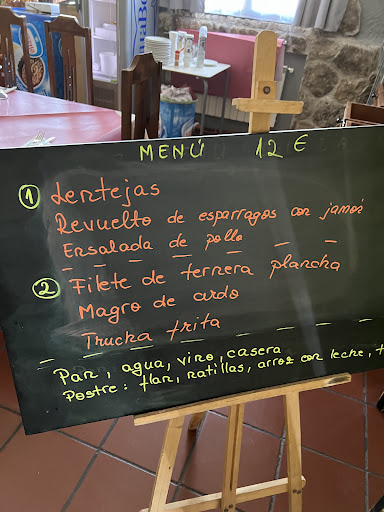 MENÚ 12 €
1 Lentejas
Revuelto de esparragos con jamón
Ensalada de pollo
2 Filete de ternera plancha
Magro de cerdo
Trucha frita
Pan, agua, vino, casera
Postre: flan, natillas, arroz con leche,